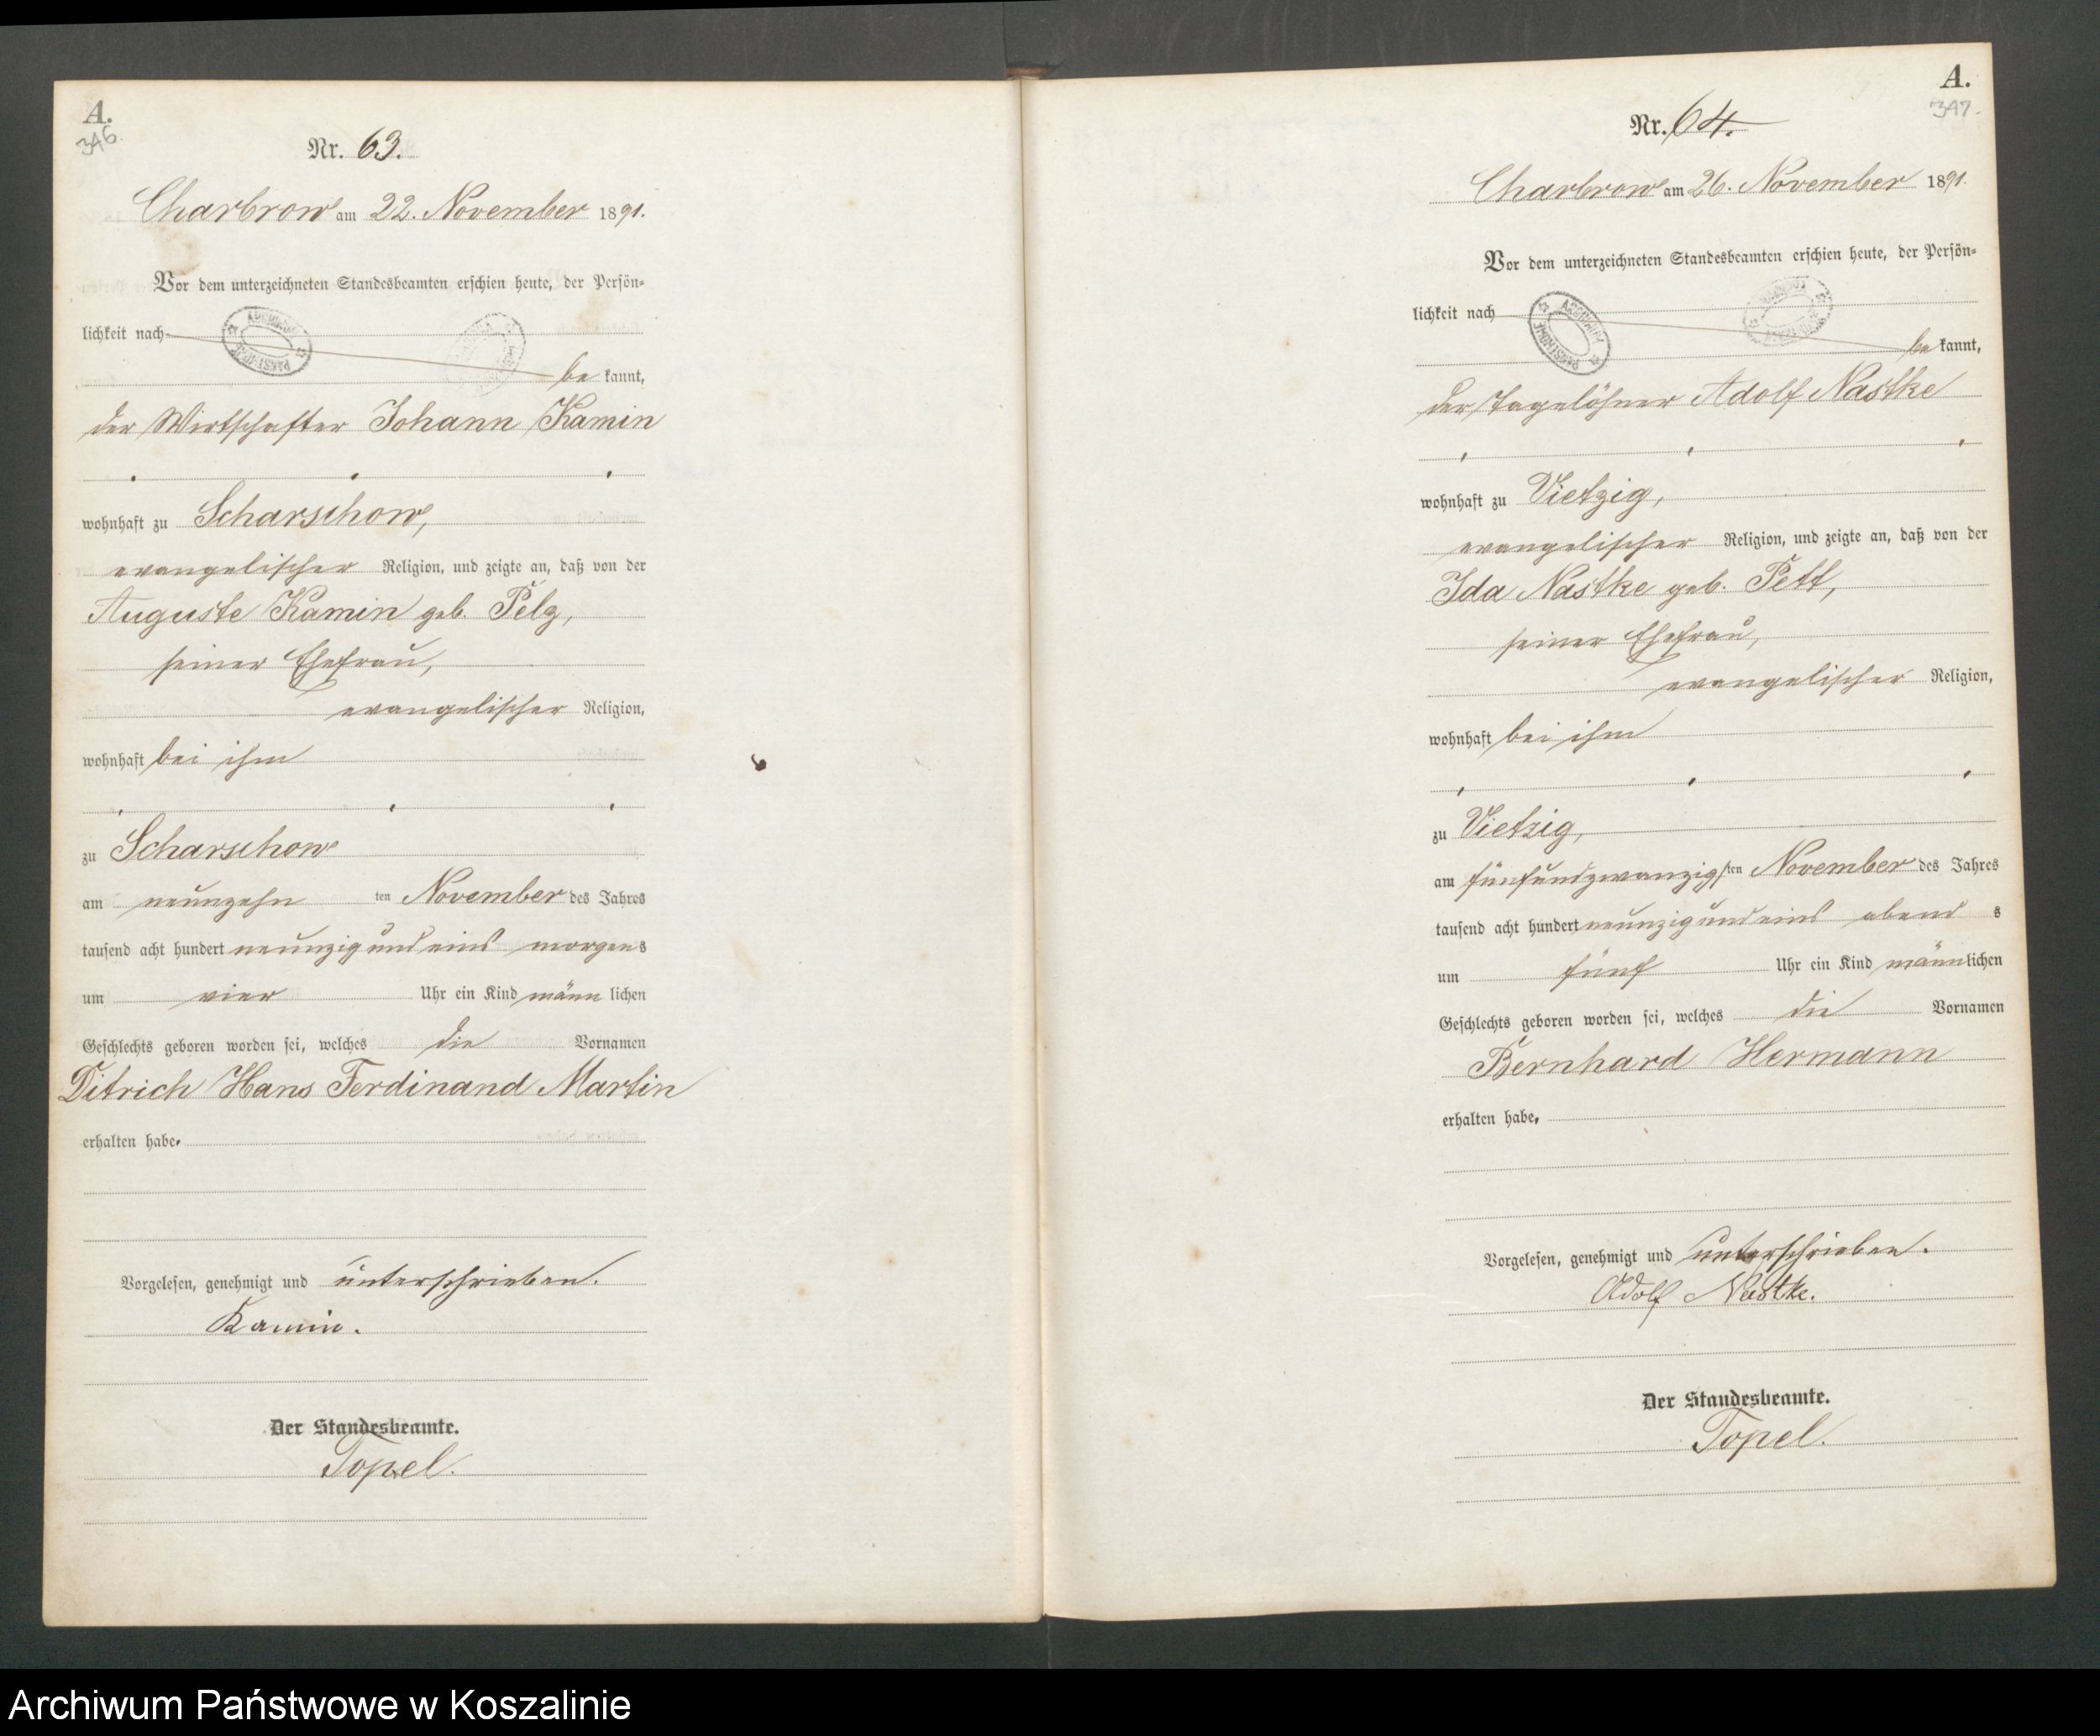 A.
346.
Nr. 63.
Charbrow am 22. November 1891.
Vor dem unterzeichneten Standesbeamten erschien heute, der Persön-
lichkeit nach
be kannt,
der Wirtschafter Johann Kamin
wohnhaft zu Scharschow,
evangelischer Religion, und zeigte an, daß von der
Auguste Kamin geb. Pelz,
seiner Ehefrau,
evangelischer Religion,
wohnhaft bei ihm
zu Scharschow
am neunzehn ten November des Jahres
tausend acht hundert neunzig und eins morgens
um vier Uhr ein Kind männ lichen
Geschlechts geboren worden sei, welches die Vornamen
Ditrich Hans Ferdinand Martin
erhalten habe.
Vorgelesen, genehmigt und unterschrieben.
Kamin.
Der Standesbeamte.
Topel.
A.
347.
Nr. 64.
Charbrow am 26. November 1891.
Vor dem unterzeichneten Standesbeamten erschien heute, der Persön-
lichkeit nach
be kannt,
der Tagelöhner Adolf Nastke
wohnhaft zu Vietzig,
evangelischer Religion, und zeigte an, daß von der
Ida Nastke geb. Pett,
seiner Ehefrau,
evangelischer Religion,
wohnhaft bei ihm
zu Vietzig,
am fünfundzwanzigsten November des Jahres
tausend acht hundert neunzig und eins abend s
um fünf Uhr ein Kind männlichen
Geschlechts geboren worden sei, welches die Vornamen
Bernhard Hermann
erhalten habe.
Vorgelesen, genehmigt und unterschrieben.
Adolf Nastke.
Der Standesbeamte.
Topel.
Archiwum Państwowe w Koszalinie